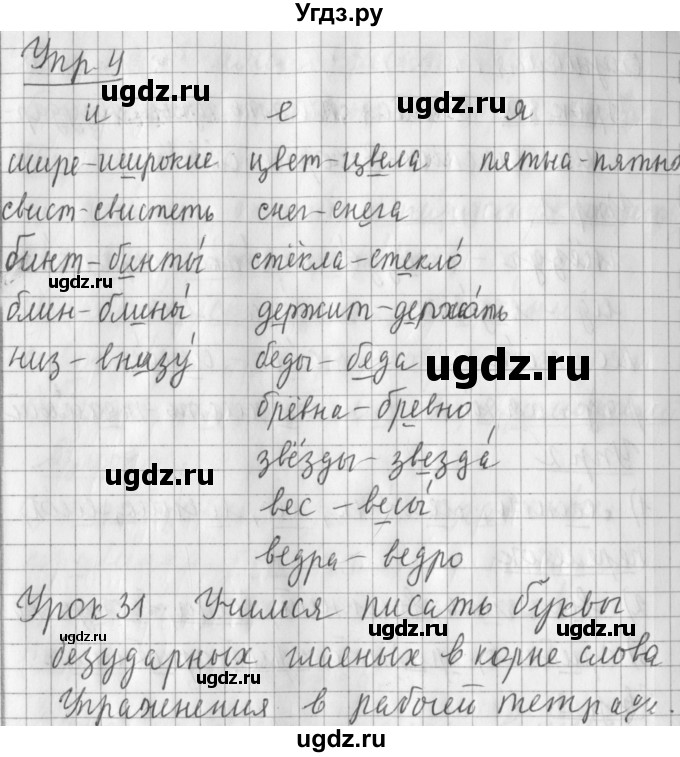 Угдз.ру
Упр 4
ugdz.ru ugdz.ru
и е я
шире-широкие цвет-цвела пятна-пятно
свист-свистеть снег-снега
бинт-бинты́ стёкла-стекло́
ugdz.ru
блин-блины́ держит-держа́ть
низ-внизу́ беды-беда
ugdz.ru
брёвна-бревно
звёзды-звезда́
ugdz.ru
вес-весы́
ведра-ведро
Урок 31 Учимся писать буквы
ugdz.ru ugdz.ru ugdz.ru
безударных гласных в корне слова
Упражнения в рабочей тетради.
ugdz.ru